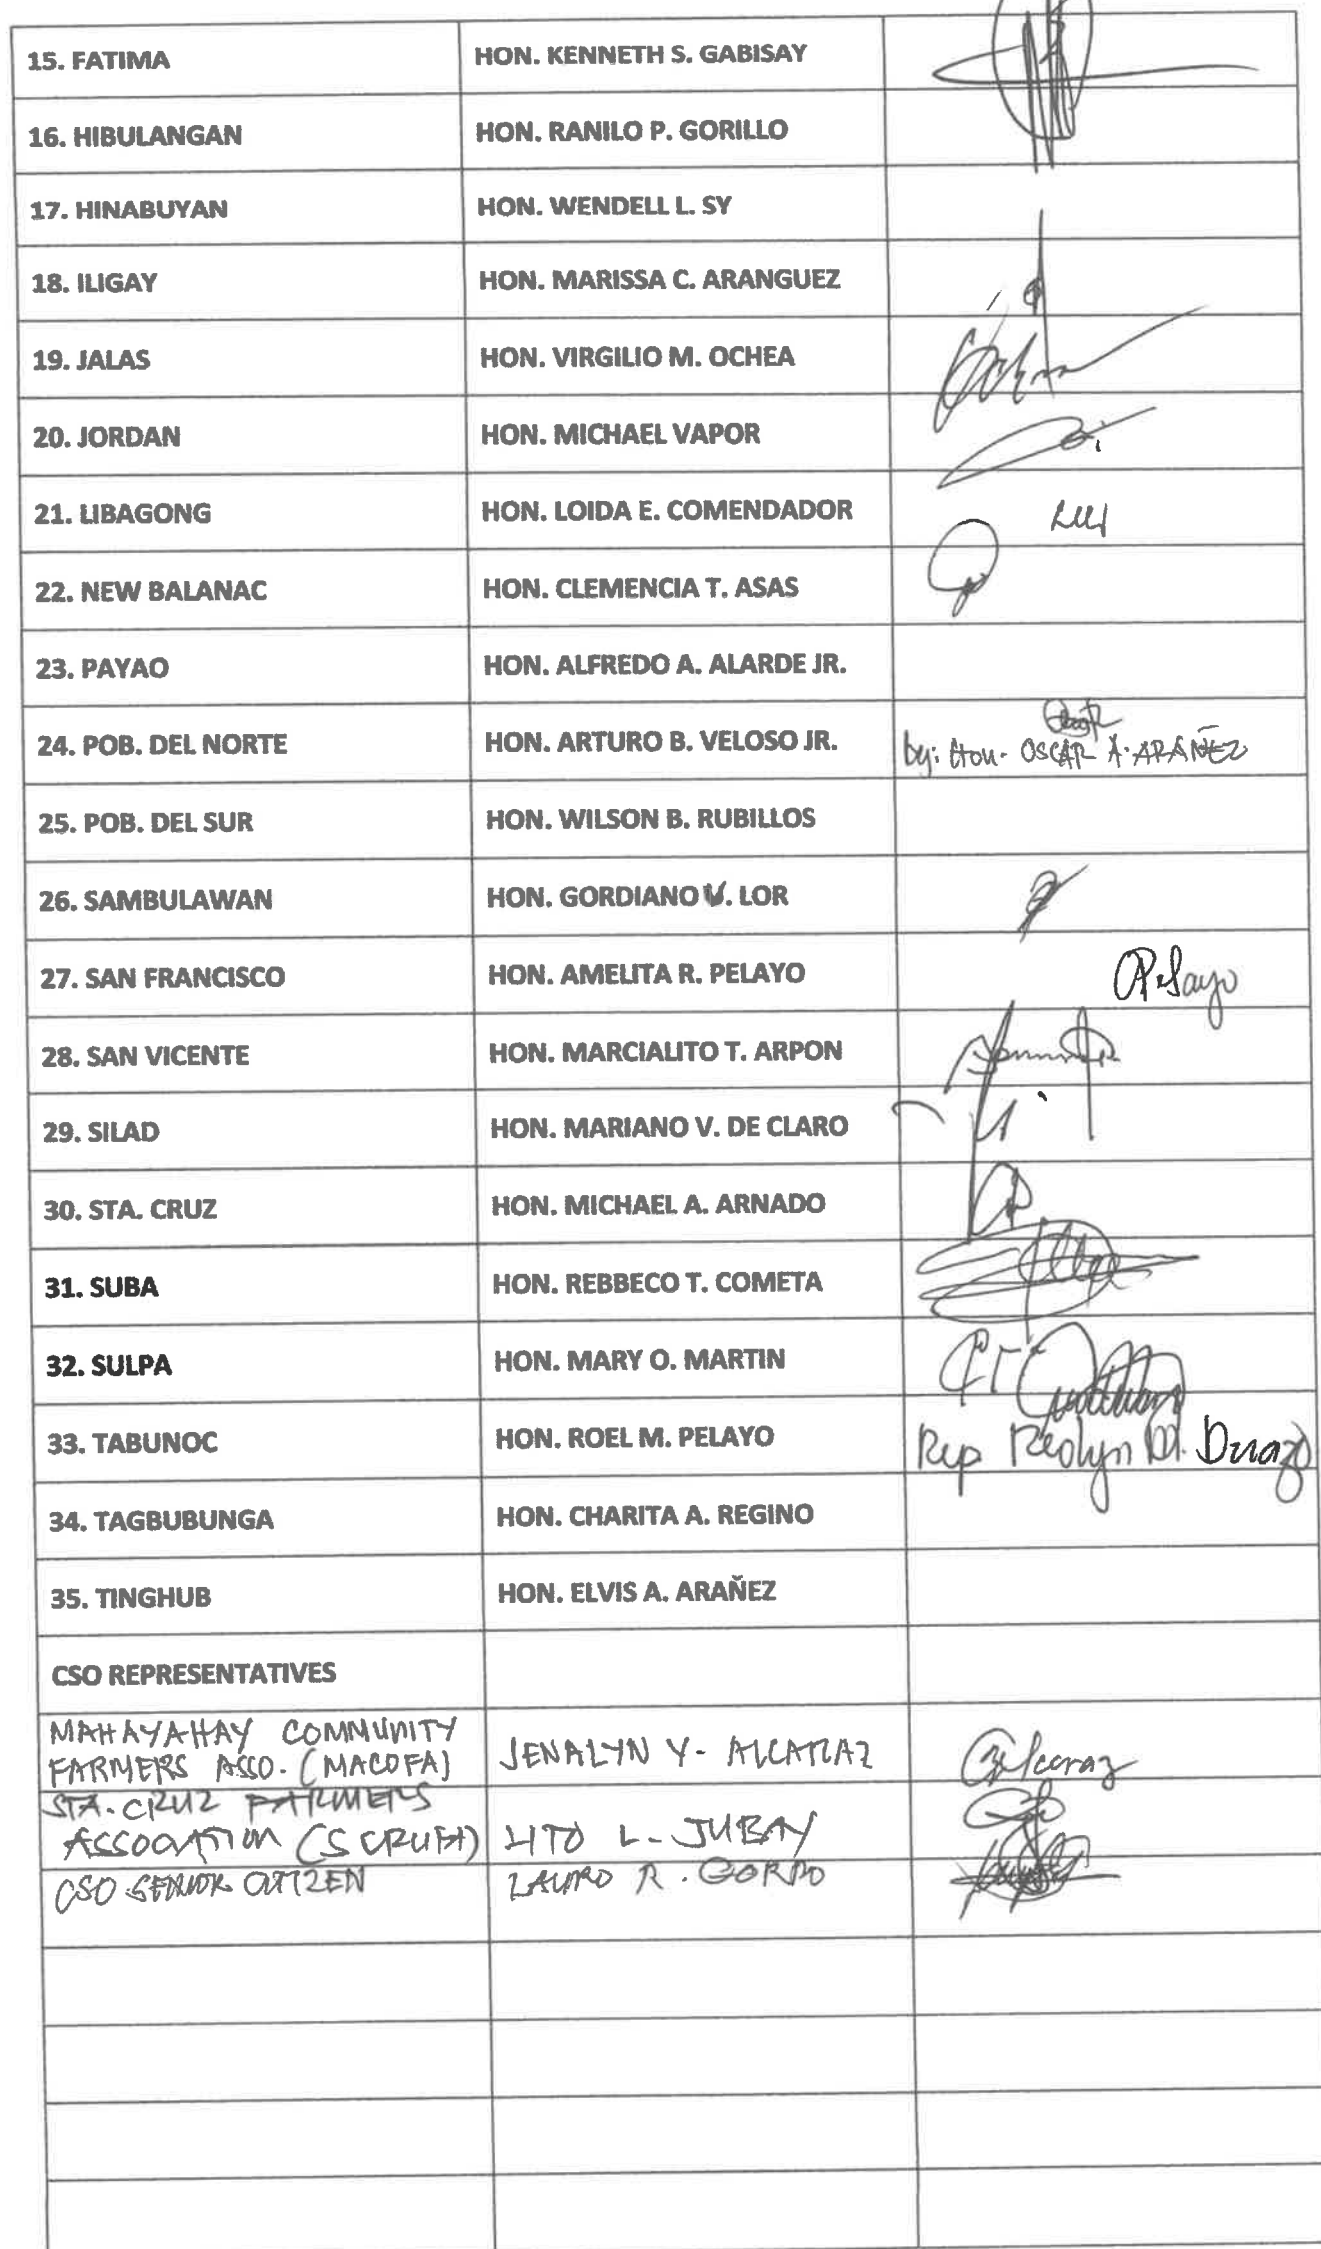 15. FATIMA HON. KENNETH S. GABISAY
16. HIBULANGAN HON. RANILO P. GORILLO
17. HINABUYAN HON. WENDELL L. SY
18. ILIGAY HON. MARISSA C. ARANGUEZ
19. JALAS HON. VIRGILIO M. OCHEA
20. JORDAN HON. MICHAEL VAPOR
21. LIBAGONG HON. LOIDA E. COMENDADOR
22. NEW BALANAC HON. CLEMENCIA T. ASAS
23. PAYAO HON. ALFREDO A. ALARDE JR.
24. POB. DEL NORTE HON. ARTURO B. VELOSO JR. by: Hon. OSCAR A. ARAÑEZ
25. POB. DEL SUR HON. WILSON B. RUBILLOS
26. SAMBULAWAN HON. GORDIANO V. LOR
27. SAN FRANCISCO HON. AMELITA R. PELAYO Pelayo
28. SAN VICENTE HON. MARCIALITO T. ARPON
29. SILAD HON. MARIANO V. DE CLARO
30. STA. CRUZ HON. MICHAEL A. ARNADO
31. SUBA HON. REBBECO T. COMETA
32. SULPA HON. MARY O. MARTIN
33. TABUNOC HON. ROEL M. PELAYO Rep Reolyn M. Durazo
34. TAGBUBUNGA HON. CHARITA A. REGINO
35. TINGHUB HON. ELVIS A. ARAÑEZ
CSO REPRESENTATIVES
MAHAYAHAY COMMUNITY
FARMERS ASSO. (MACOFA) JENALYN Y. ALCARAZ Alcaraz
STA. CRUZ FARMERS
ASSOCIATION (SCRUFA) LITO L. JUBAY
CSO SENIOR CITIZEN LAURO R. GORDO